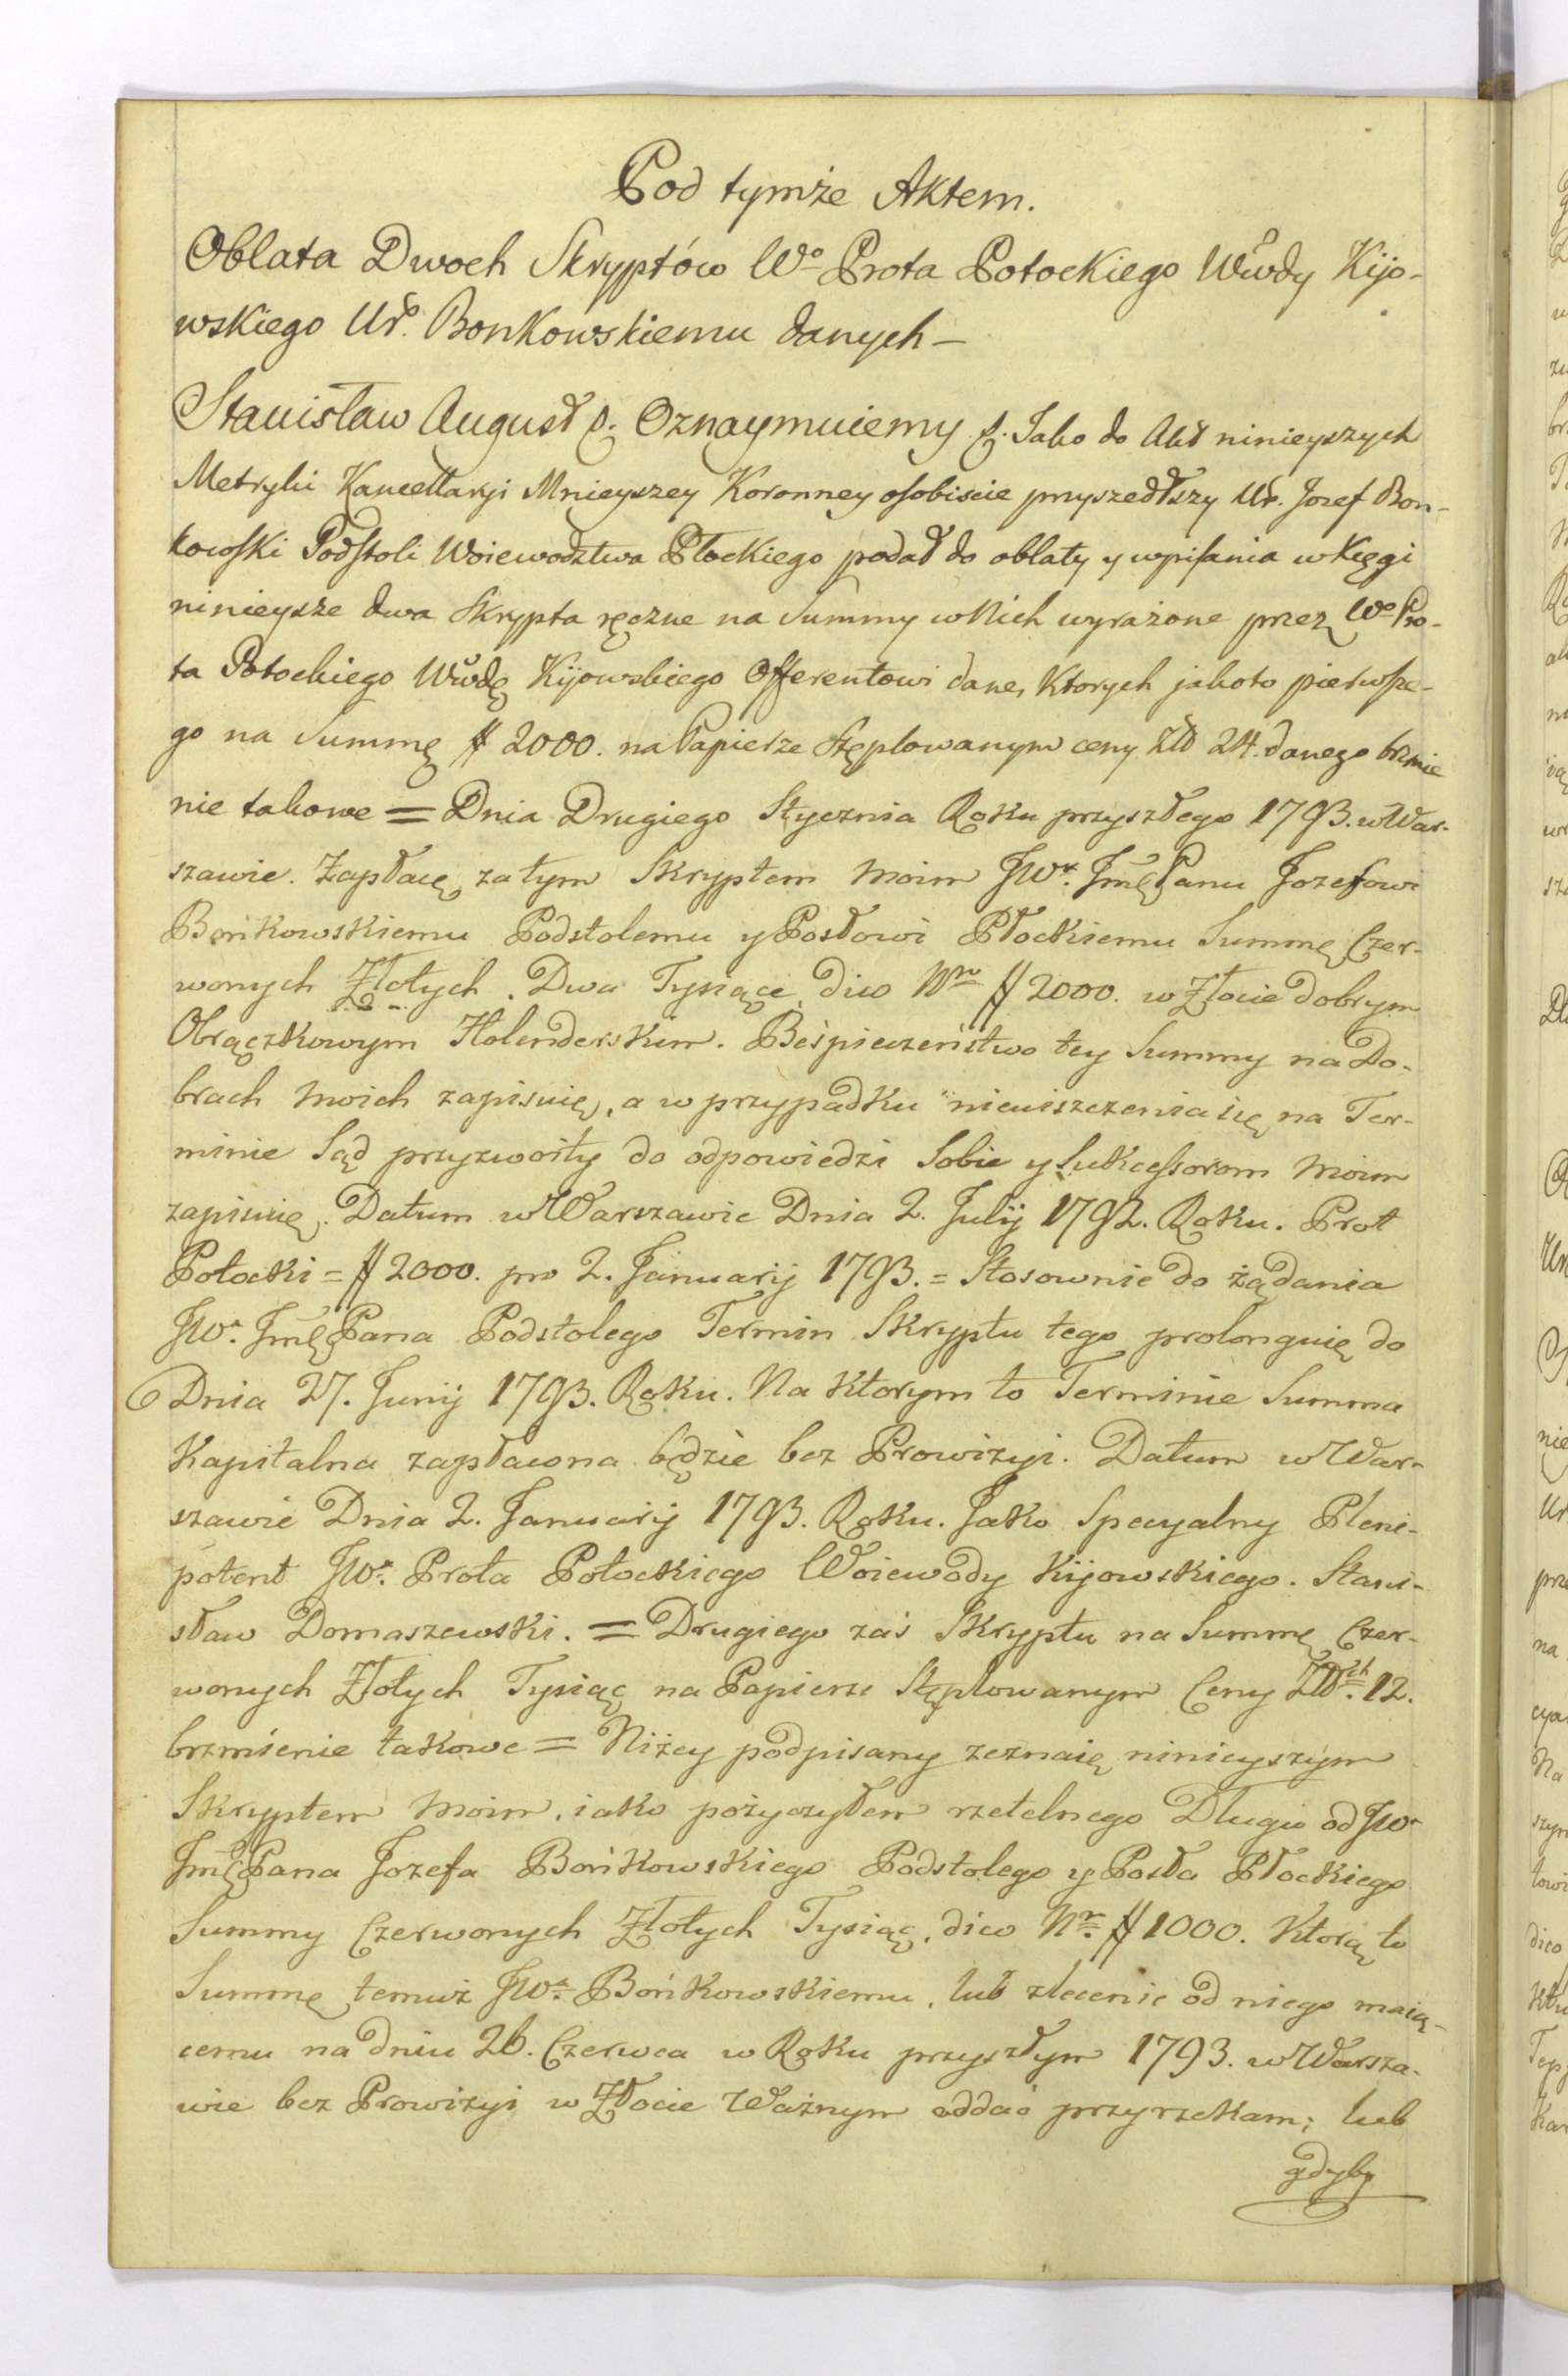 Pod tymże Aktem.
Oblata Dwoch Skryptów Wo Prota Potockiego Wwdy Kijo-
wskiego Ur. Bonkowskiemu danych —
Stanisław August &. Oznaymuiemy &. Jako do Akt ninieyszych
Metryki Kancellaryi Mnieyszey Koronney osobiscie przyszedłszy Ur. Jozef Bon-
kowski Podstoli Woiewodztwa Płockiego podał do oblaty y wpisania w Kięgi
ninieysze dwa Skrypta ręczne na Summy w Nich wyrażone przez Wo Pro-
ta Potockiego Wwdę Kijowskiego Offerentowi dane, Ktorych jakoto pierwsze-
go na Summę # 2000. na Papierze Stęplowanym ceny Złł 24. danego brzmie
nie takowe = Dnia Drugiego Stycznia Roku przyszłego 1793. w War-
szawie. Zapłacę za tym Skryptem Moim JWr. Jmę Panu Jozefowi
Bońkowskiemu Podstolemu y Posłowi Płockiemu Summę Czer-
wonych Złotych. Dwa Tysiące dico Nro # 2000. w Złocie dobrym
Obrączkowym Holenderskim. Beśpieczeństwo tey Summy na Do-
brach Moich zapisuię, a w przypadku nieuiszczenia się na Ter-
minie Sąd przyzwoity do odpowiedzi Sobie y Sukcessorom Moim
zapisuię. Datum w Warszawie Dnia 2. Julij 1792. Roku. Prot
Potocki = # 2000. pro 2. Januarij 1793. = Stosownie do żądania
JWr. Jmę Pana Podstolego Termin Skryptu tego prolonguię do
Dnia 27. Junij 1793. Roku. Na Ktorym to Terminie Summa
Kapitalna zapłacona będzie bez Prowizyi. Datum w War-
szawie Dnia 2. Januarij 1793. Roku. Jako Specyalny Pleni-
potent JWr. Prota Potockiego Woiewody Kijowskiego. Stani-
sław Domaszewski. = Drugiego zaś Skryptu na Summę Czer-
wonych Złotych Tysiąc na Papierze Stęplowanym Ceny Złłch. 12.
brzmienie takowe = Niżey podpisany zeznaię ninieyszym
Skryptem Moim, iako pożyczyłem rzetelnego Długu od JWr
Jmę Pana Jozefa Bońkowskiego Podstolego y Posła Płockiego
Summy Czerwonych Złotych Tysiąc, dico Nr. # 1000. Ktorą to
Summę temuż JWr. Bońkowskiemu, lub zlecenie od niego maią-
cemu na dniu 26. Czerwca w Roku przyszłym 1793. w Warsza-
wie bez Prowizyi w Złocie Ważnym oddać przyrzekam; lub
gdyby